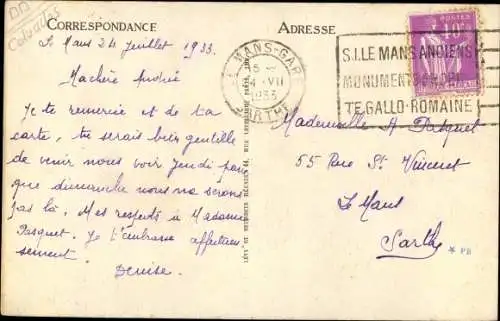 Calvados
CORRESPONDANCE
Le Mans 24 Juillet 1933.
Ma chère Andrée
Je te remercie et de ta
carte, tu serais bien gentille
de venir nous voir Jeudi par
que dimanche nous ne serons
pas là. Mes respects à Madame
Pasquet. Je t'embrasse affectueu
sement.
Denise.
LÉVY ET NEURDEIN RÉUNIS 44, RUE LETELLIER PARIS
ADRESSE
LE MANS-GARE
15 -
24 -VII
1933
SARTHE
S.I.LE MANS.ANCIENS
MONUMENTS
TE.GALLO-ROMAINE
POSTES
Mademoiselle A Pasquet
55 Rue St Vincent
Le Mans
Sarthe
* PB